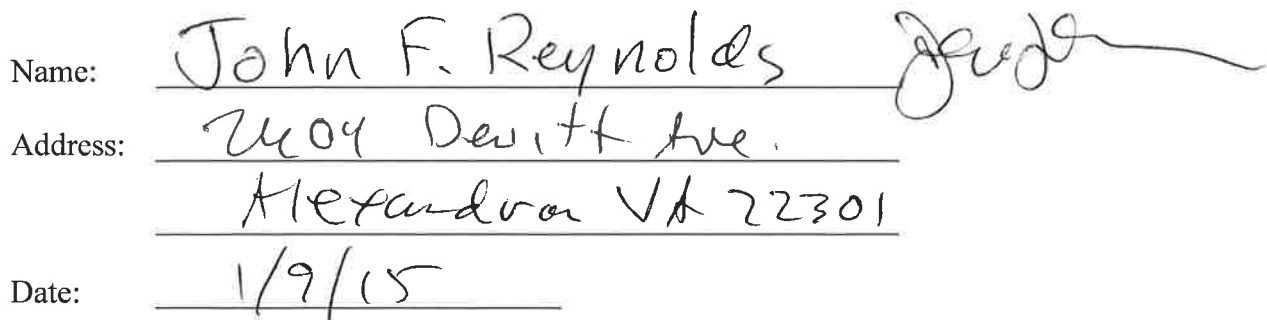 Name: John F. Reynolds
Address: 2404 Dewitt Ave.
Alexandria VA 22301
Date: 1/9/15